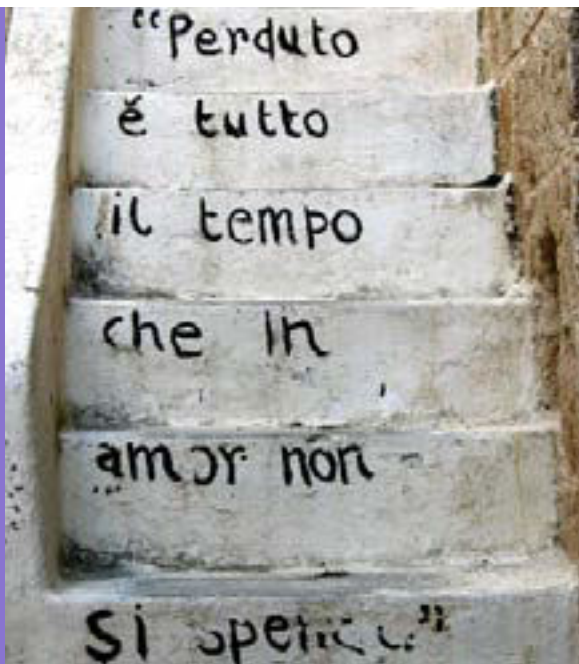 “Perduto
è tutto
il tempo
che in
amor non
si